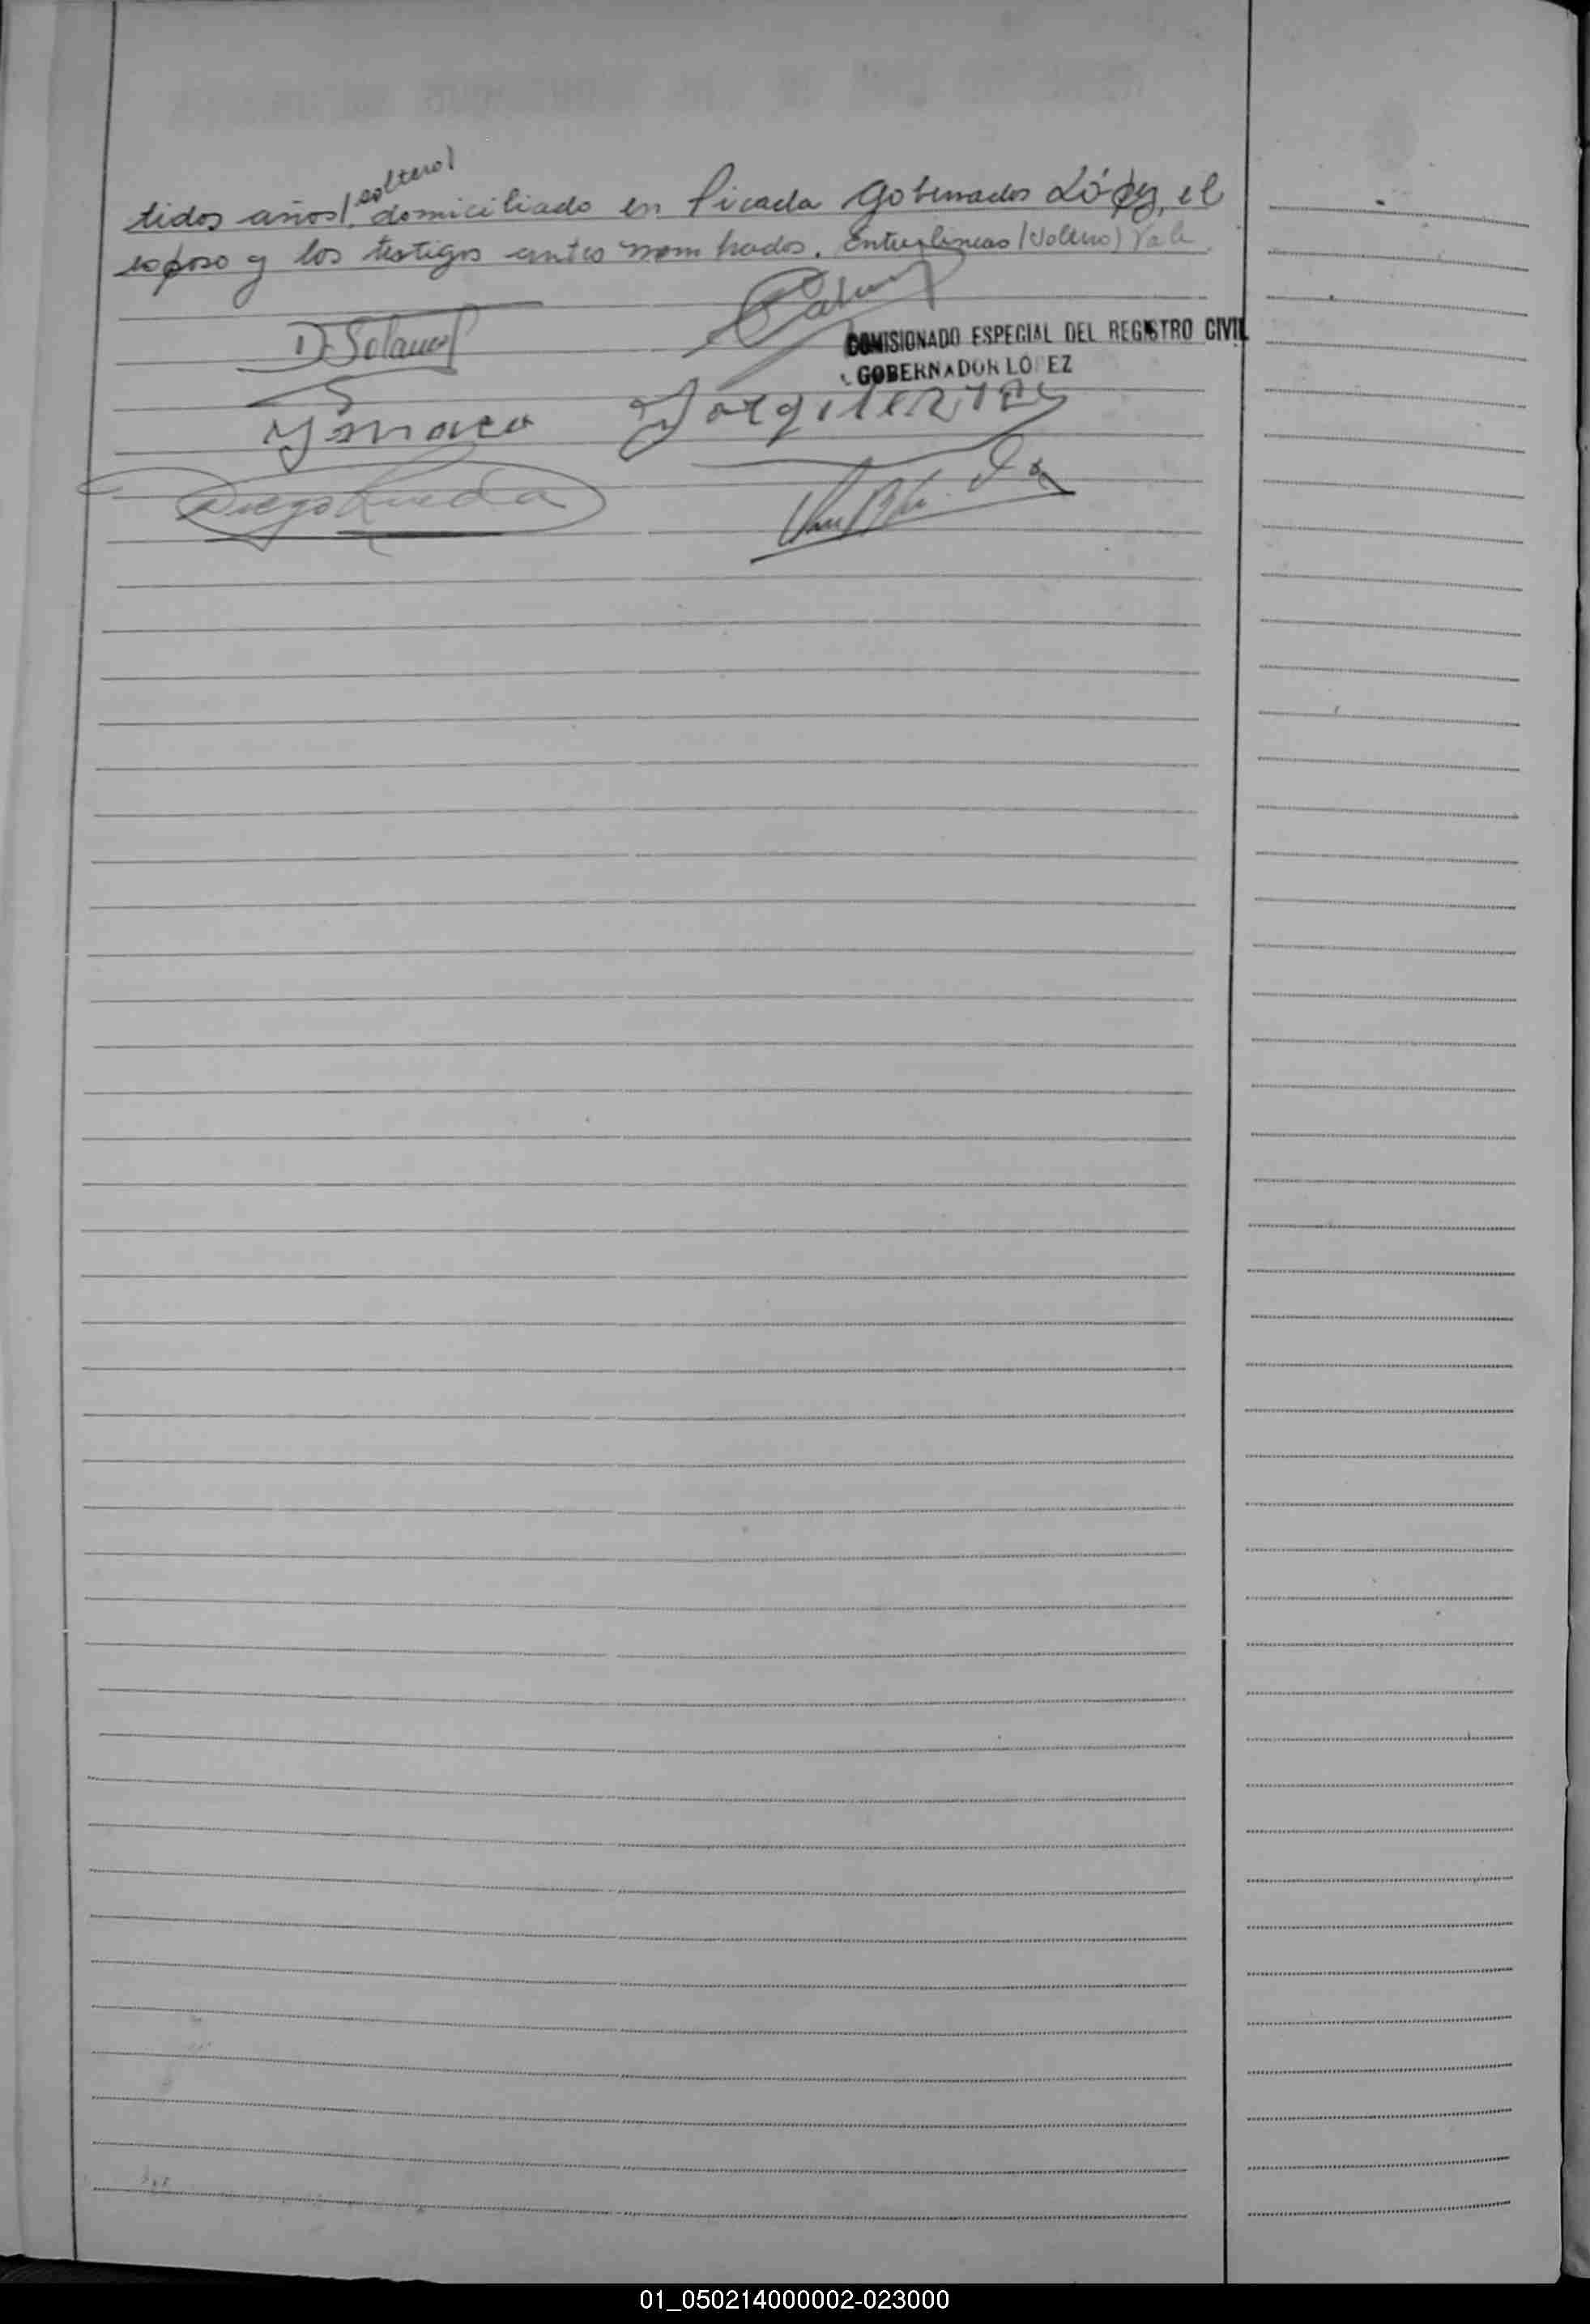 soltero)
tidos años(, domiciliado en Picada Gobernador López, el
esposo y los testigos antes nombrados. Entrelíneas (Soltero) Vale
D. Solano
COMISIONADO ESPECIAL DEL REGISTRO CIVIL
GOBERNADOR LOPEZ
Diego Rueda
01_050214000002-023000